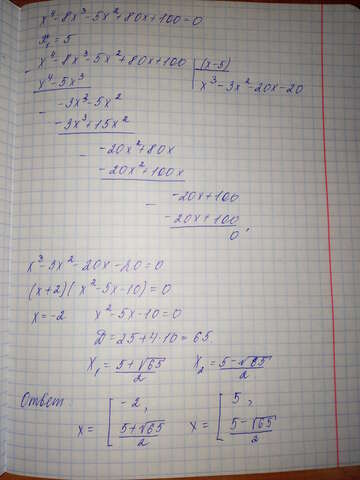 x⁴-8x³-5x²+80x+100=0
x₁=5
x⁴-8x³-5x²+80x+100 | (x-5)
x⁴-5x³ x³-3x²-20x-20
-3x³-5x²
-3x³+15x²
-20x²+80x
-20x²+100x
-20x+100
-20x+100
0,
x³-3x²-20x-20=0
(x+2)(x²-5x-10)=0
x=-2 x²-5x-10=0
D=25+4·10=65
x₁=(5+√65)/2 x₂=(5-√65)/2
Ответ:
x=[-2, (5+√65)/2 x=[5, (5-√65)/2